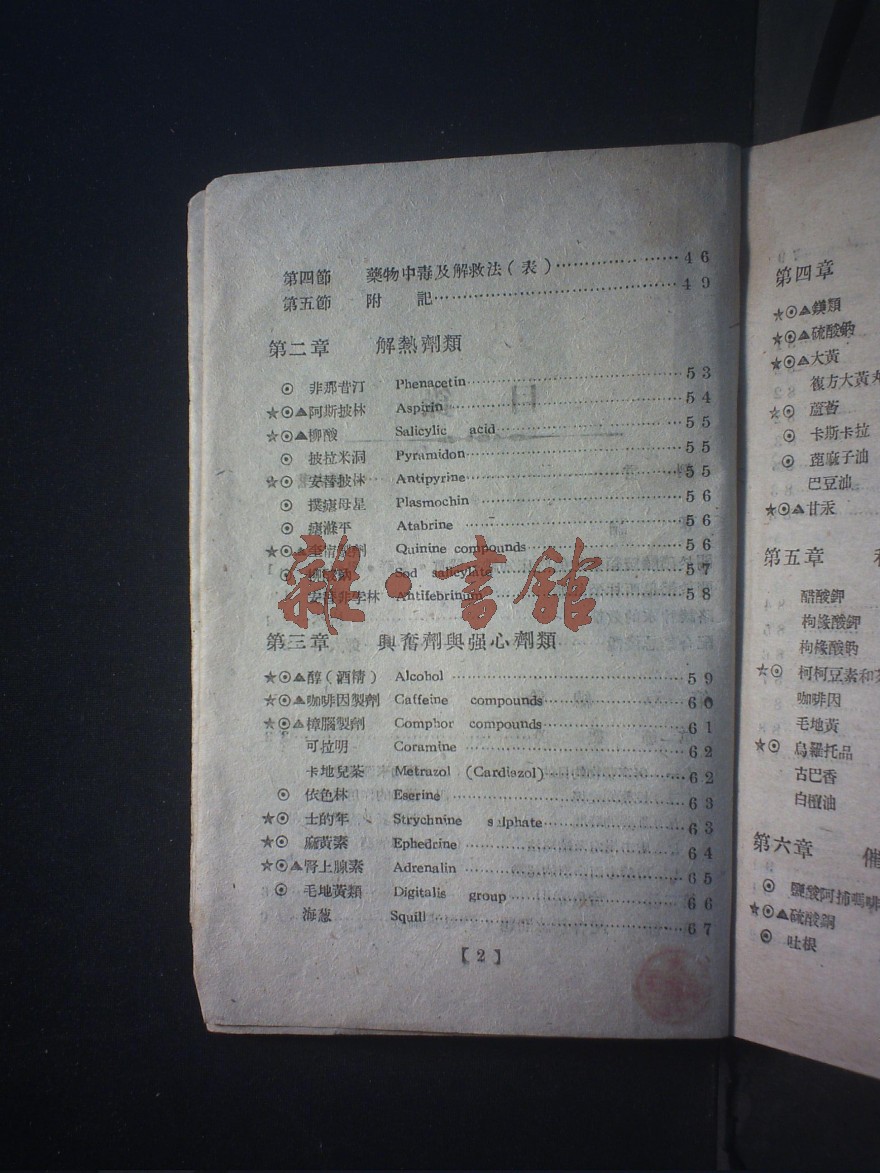 第四節 藥物中毒及解救法(表)……………………46
第五節 附 記……………………49
第二章 解熱劑類
⊙ 非那昔汀 Phenacetin……………………53
★⊙▲阿斯披林 Aspirin……………………54
★⊙▲柳酸 Salicylic acid……………………55
⊙ 披拉米洞 Pyramidon……………………55
★⊙ 安替披林 Antipyrine……………………55
⊙ 撲瘧母星 Plasmochin……………………56
⊙ 瘧滌平 Atabrine……………………56
★⊙▲ Quinine compounds……………………56
⊙ Sod salicylate……………………57
林 Antifebrinum……………………58
第三章 興奮劑與强心劑類
★⊙▲醇(酒精) Alcohol……………………59
★⊙▲咖啡因製劑 Caffeine compounds……………………60
★⊙▲樟腦製劑 Comphor compounds……………………61
可拉明 Coramine……………………62
卡地兒茶 Metrazol (Cardiazol)……………………62
⊙ 依色林 Eserine……………………63
★⊙ 士的年 Strychnine sulphate……………………63
★⊙ 麻黃素 Ephedrine……………………64
★⊙▲腎上腺素 Adrenalin……………………65
⊙ 毛地黃類 Digitalis group……………………66
海葱 Squill……………………67
【2】
雜·書館
第四章
★⊙▲鎂類
★⊙▲硫酸鈉
★⊙▲大黃
複方大黃丸
★⊙ 蘆薈
⊙ 卡斯卡拉
⊙ 蓖麻子油
巴豆油
★⊙▲甘汞
第五章
醋酸鉀
枸緣酸鉀
枸緣酸鈉
★⊙ 柯柯豆素和
咖啡因
毛地黃
★⊙ 烏羅托品
古巴香
白檀油
第六章 催
⊙ 鹽酸阿捕嗎啡
★⊙▲硫酸銅
⊙ 吐根